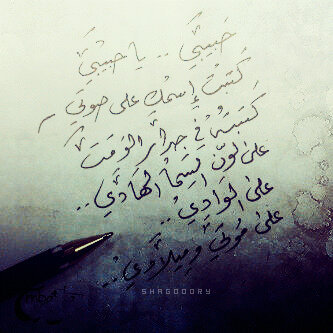 حبيبتي .. يا حبيبتي
كَتبتْ إسمِكْ على صوتي
كَتبتهْ في جدار الوقت
على لون السما الهادي ..
على الوادي ..
على موتي وميلادي ..
SHAGOOORY